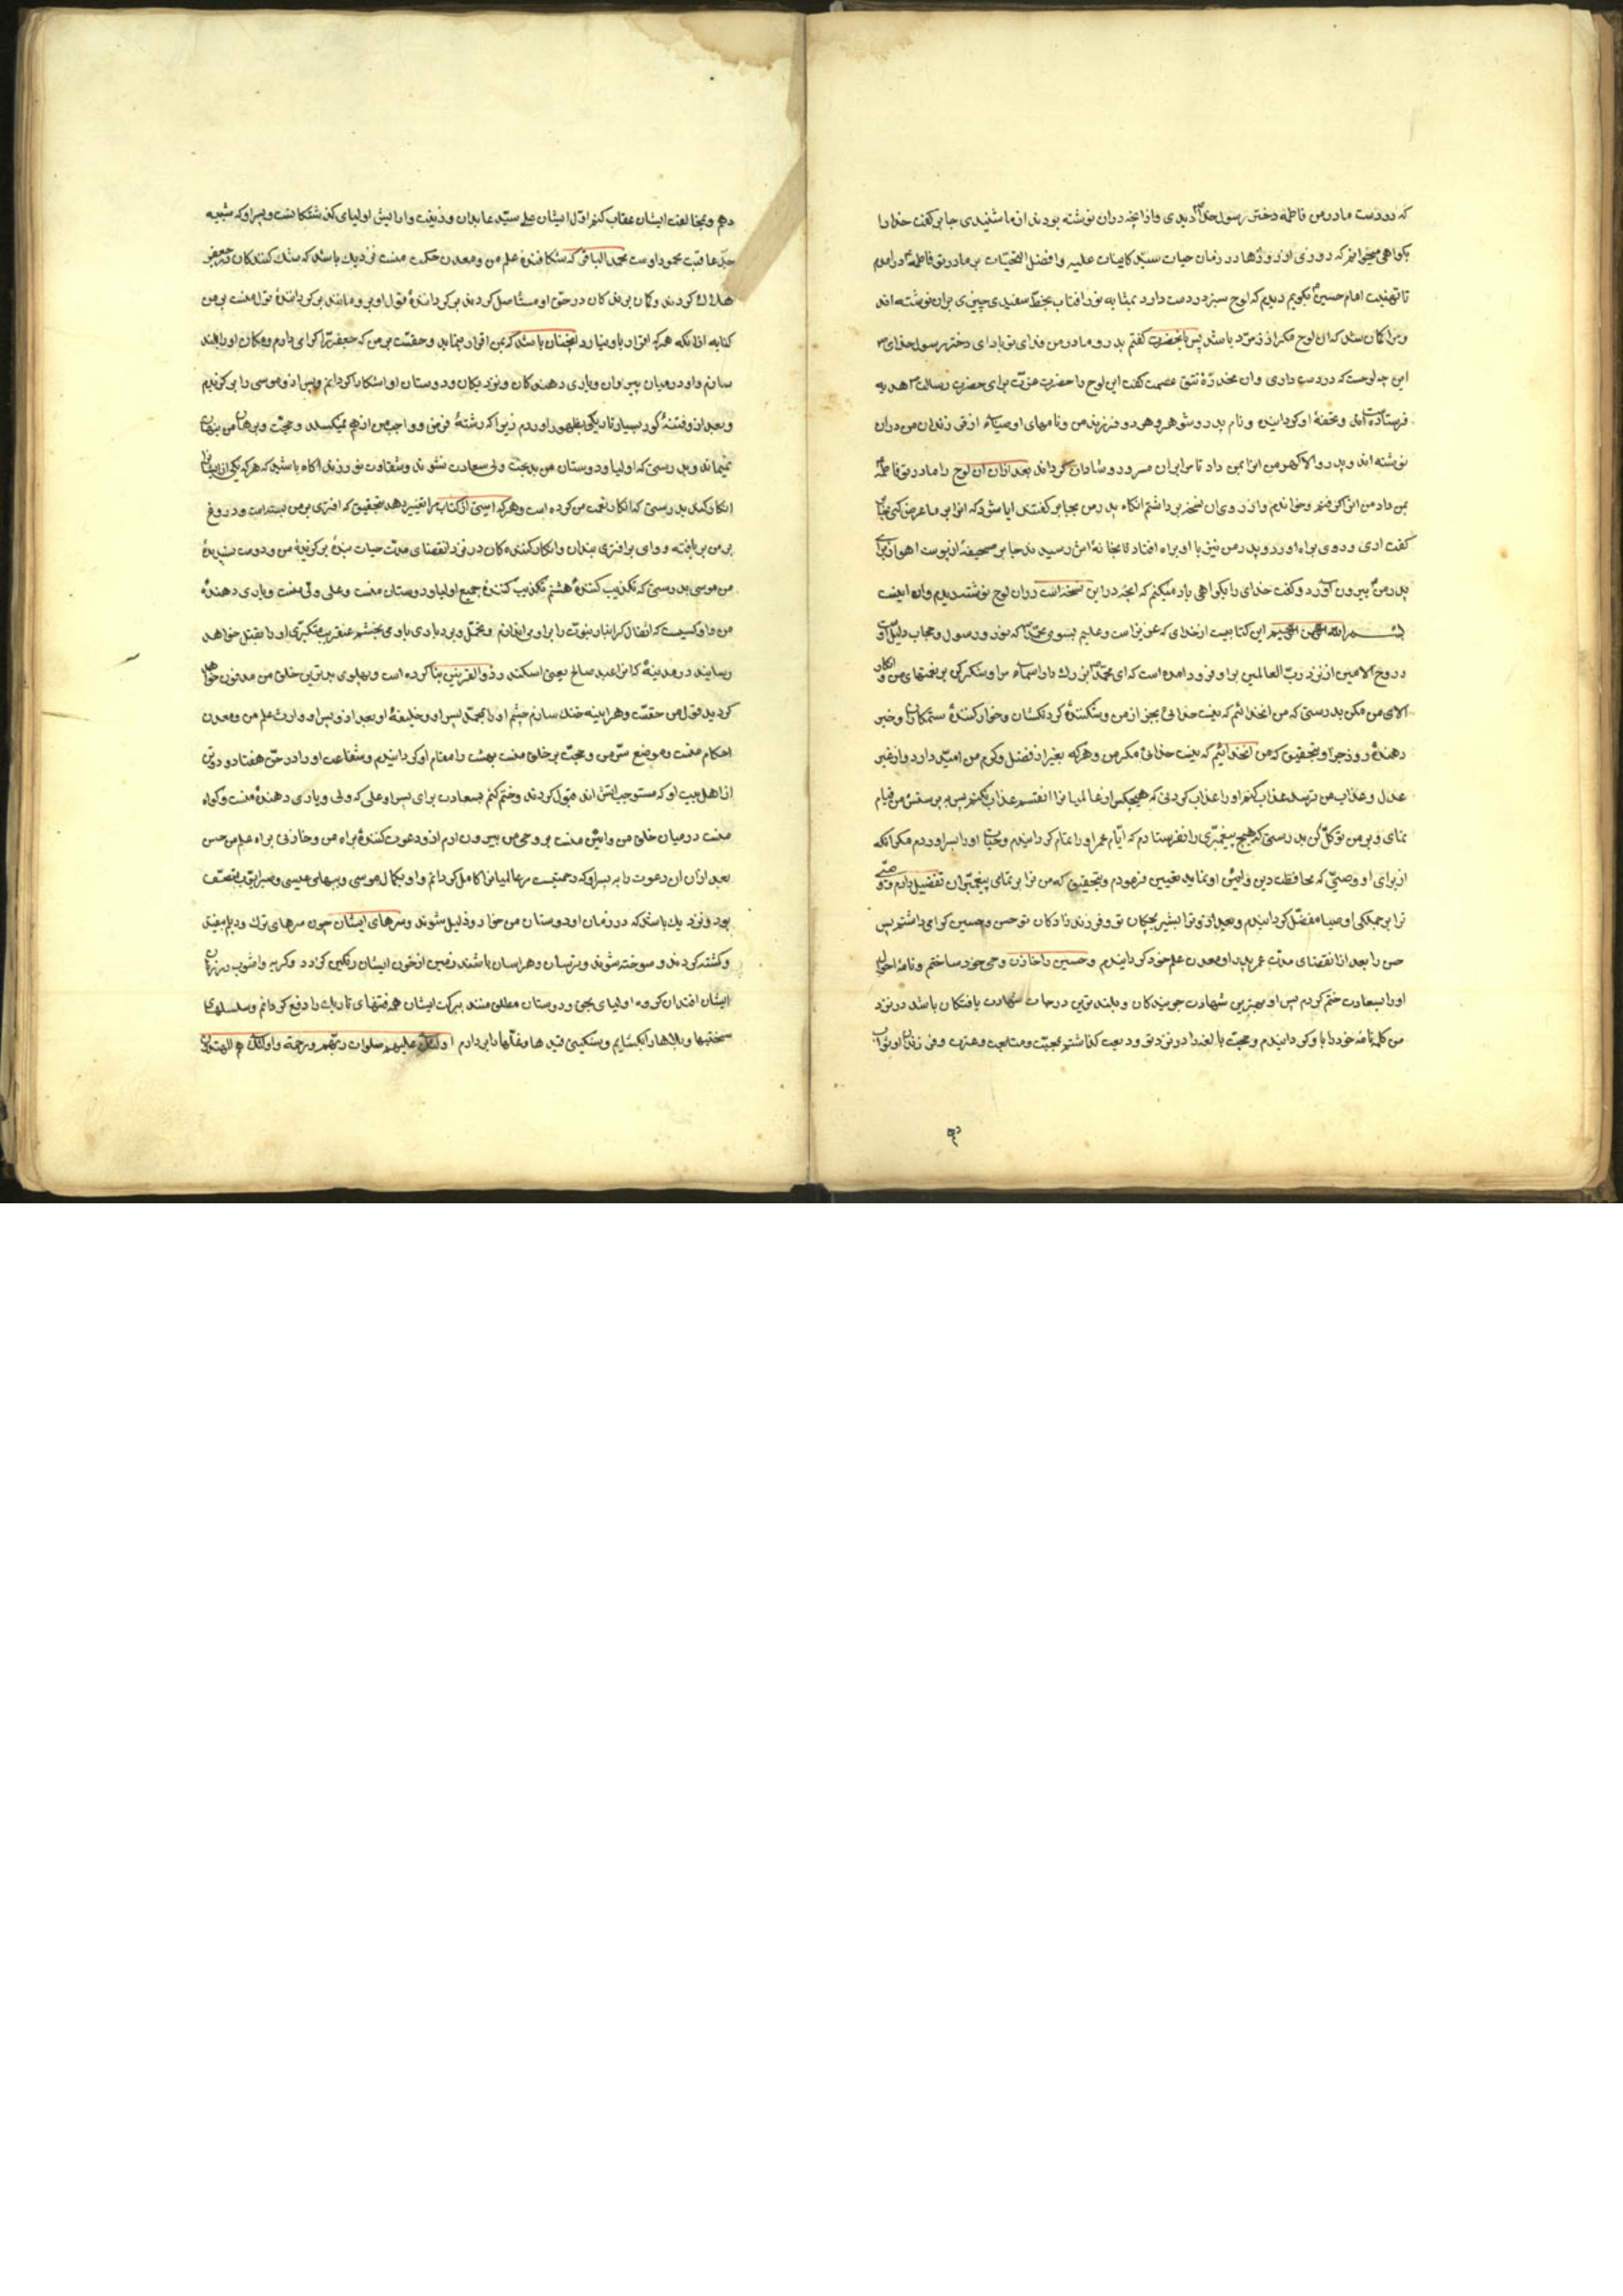 که در دست مادر من فاطمه دختر رسول خدا دیدی و از انچه دران نوشته بودند از ما شنیدی جابر کفت خدا را
بکواهی میخوانم که روزی از روزها در زمان حیات سید کاینات علیه وافضل التحیات بر مادر تو فاطمه درامدم
تا تهنیت امام حسین بکویم دیدم که لوح سبز در دست دارد بمثابه نور افتاب بخط سفیدی چیزی بران نوشته اند
ومرا کمان شد که ان لوح مکر از زمرد باشد پس بانحضرت کفتم پدر و مادر من فدای تو باد ای دختر رسول خدای
این چه لوحست که در دست داری وان مخدرهٔ تتق عصمت کفت این لوح را حضرت عزت برای حضرت رسالت هدیه
فرستاده اند وتحفهٔ او کردانیده و نام پدر و شوهر و هر دو فرزند من و نامهای اوصیاء از فرزندان من دران
نوشته اند و پدر والاکهر من انرا بمن داد تا مرا بران مسرور و شادان کرداند بعد ازان ان لوح را مادر تو فاطمه
بمن داد من انرا کرفتم وخواندم واز روی ان نسخه برداشتم انکاه پدر من بجابر کفت ایا شود که انرا بر ما عرض کنی جابر
کفت اری وروی براه اورد و پدر من نیز با او براه افتاد تا بخانهٔ اش رسیدند جابر صحیفهٔ از پوست اهو از برای
پدر من بیرون اورد و کفت خدای را بکواهی یاد میکنم که انچه در این نسخه است دران لوح نوشته دیدم وان اینست
بسم الله الرحمن الرحیم این کتابیست از خدای که عزیز است وعلیم بسوی محمد که نور ورسول وحجاب ودلیل اوست
وروح الامین از نزد رب العالمین براو فرود امده است که ای محمد بزرک دار اسماء مرا وشکر کن بر نعتهای من وانکار
الای من مکن بدرستی که من انخدائیم که نیست خدائی بجز از من وشکنندهٔ کردنکشان وخوار کنندهٔ ستمکاران وخبر
دهندهٔ روز جزا وبتحقیق که من انخدائیم که نیست خدائی مکر من وهرکه بغیر از فضل وکرم من امید دارد واز غیر
عدل وعذاب من ترسد عذاب کنم او را عذاب کردنی که هیچکس از عالمیانرا انقسم عذاب نکنم پس به پرستش من قیام
نمای وبر من توکل کن بدرستی که هیچ پیغمبری را نفرستادم که ایام عمر او را تمام کردانیدم وحیات او را بسر اوردم مکر انکه
از برای او وصیی که محافظت دین وایین او نماید تعیین فرمودم وبتحقیق که من ترا بر تمامی پیغمبران تفضیل دادم ووصی
ترا بر جملکی اوصیا مفضل کردانیدم وبعد از و ترا بشیر بچکان تو وفرزند زادکان تو حسن وحسین کرامی داشتم پس
حسن را بعد از انقضای مدت عمر پدر او معدن علم خود کردانیدم وحسین را خازن وحی خود ساختم ونامهٔ احوال
او را بسعادت ختم کردم پس او بهترین شهادت جویندکان وبلندترین درجات شهادت یافتکان باشد در نزد
من کلمه تامهٔ خود را با او کردانیدم وحجت بالغه را در نزد او ودیعت کذاشتم بمحبت ومتابعت وعترت وفرزندان او ثواب
دهم
دهم وبمخالفت ایشان عقاب کنم اول ایشان علی سید عابدان وزینت وارایش اولیای کذشتکانست وپسر او که شبیه
جد عاقبت محمود اوست محمد الباقر که شکافندهٔ علم من ومعدن حکمت منست نزدیک باشد که شک کنندکان در جعفر
هلاک کردند وکمان برندکان در حق او مستاصل کردند برکردانندهٔ قول او بر و مانند برکردانندهٔ قول منست بر من
کنایه از انکه هرکه اقرار باو نیاورد انچنان باشد که بمن اقرار ننماید وحقست بر من که جعفر را کرامی دارم ومکان او را بلند
سازم واو در میان پیروان ویاری دهندکان ونزدیکان ودوستان او اشکارا کردانم وپس از و موسی را برکزیدم
وبعد از و فتنهٔ کور بسیار تاریکی بظهور اوردم زیرا که رشتهٔ فرض وواجب من از هم نمیکسلد وحجت وبرهان من پنهان
نمیماند وبدرستی که اولیا ودوستان من بدبخت وبی سعادت نشوند وشقاوت نورزند اکاه باشید که هرکه یکی از ایشانرا
انکار کند بدرستی که انکار نعمت من کرده است وهرکه ایتی از کتاب مرا تغییر دهد بتحقیق که افتری بر من بسته است ودروغ
بر من بربافته ووای بر افتری بندان وانکار کننده کان در نزد انقضای مدت حیات بندهٔ برکزیدهٔ من ودوست پسندیدهٔ
من موسی بدرستی که تکذیب کنندهٔ هشتم تکذیب کنندهٔ جمیع اولیا ودوستان منست وعلی ولی منست ویاری دهندهٔ
من واو کسیست که اثقال کرانبار نبوت را براو می اندازم وتحمل وبردباری باو می بخشم عنقریب متکبری او را بقتل خواهد
رسانید در مدینهٔ که انرا عبد صالح یعنی اسکندر ذو القرنین بنا کرده است وبپهلوی بدترین خلق من مدفون خواهد
کردید قول من حقست وهراینه خنک سازم چشم او را بمحمد پسر او وخلیفهٔ او بعد از و پس او وارث علم من ومعدن
احکام منست وموضع سر من وحجت بر خلق منست بهشت را مقام او کردانیدم وشفاعت او را در حق هفتاد و دو تن
از اهل بیت او که مستوجب اتش اند قبول کردند وختم کنم بسعادت برای پسر او علی که ولی ویاری دهندهٔ منست وکواه
منست در میان خلق من وامین منست بر وحی من بیرون ارم از و دعوت کنندهٔ براه من وخازنی براه علم من حسن
بعد ازان ان دعوت را به پسر او که رحمتیست مر عالمیانرا کامل کردانم واو بکمال موسی وببهای عیسی وصبر ایوب متصف
بود ونزدیک باشد که در زمان او دوستان من خوار وذلیل شوند وسرهای ایشان چون سرهای ترک ودیلم بیفتد
وکشته کردند وسوخته شوند وترسان وهراسان باشند زمین از خون ایشان رنکین کردد وکریه واشوب در زنان
ایشان افتد ان کروه اولیای بحق ودوستان مطلق منند ببرکت ایشان همه فتنهای تاریک را دفع کردانم وسلسلهای
سختیها وبلاها را بکشایم وسنکینی قیدها وغلها را بردارم اولئک علیهم صلوات من ربهم ورحمة واولئک هم المهتدون